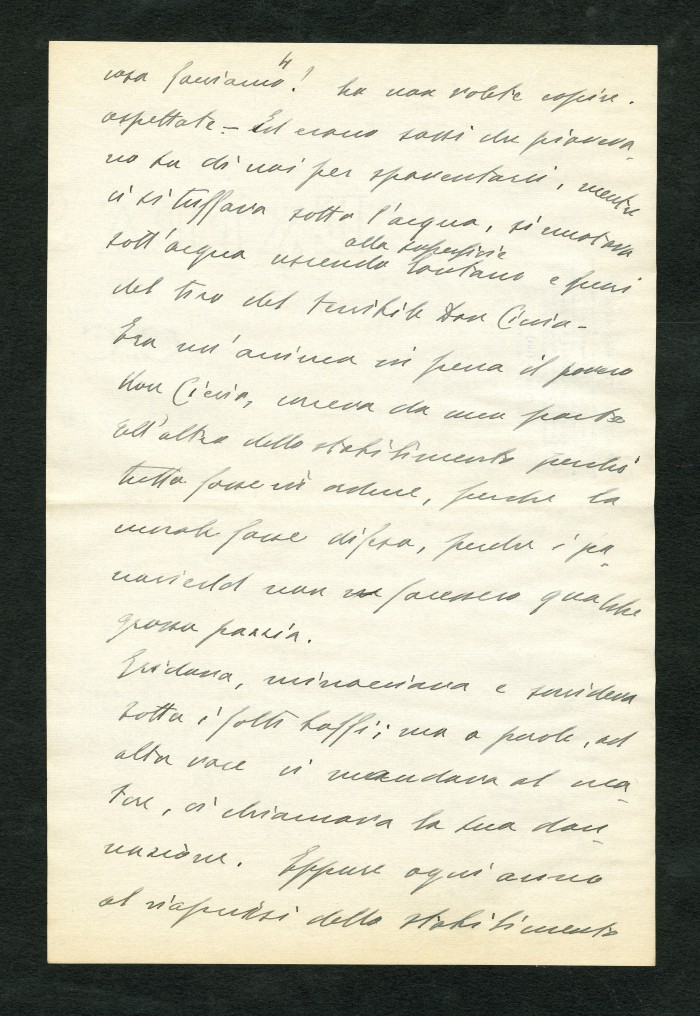 4
cosa facciamo! ha non volete capire.
aspettate – Ed erano sassi che pioveva-
no su di noi per spaventarci, mentre
ci si tuffava sotto l'acqua, si nuotava
alla superficie
sott'acqua uscendo lontano e fuori
del tiro del terribile Don Ciccio –
Era un'anima in pena il povero
don Ciccio, correva da una parte
all'altra dello stabilimento perchè
tutto fosse in ordine, perchè la
morale fosse difesa, perchè i
non facessero qualche
grossa pazzia.
Gridava, minacciava e sorrideva
sotto i folti baffi; ma a parole, ad
alta voce ci mandava al crea-
tore, ci chiamava la sua dan-
nazione. Eppure ogni anno
al riaprirsi dello stabilimento